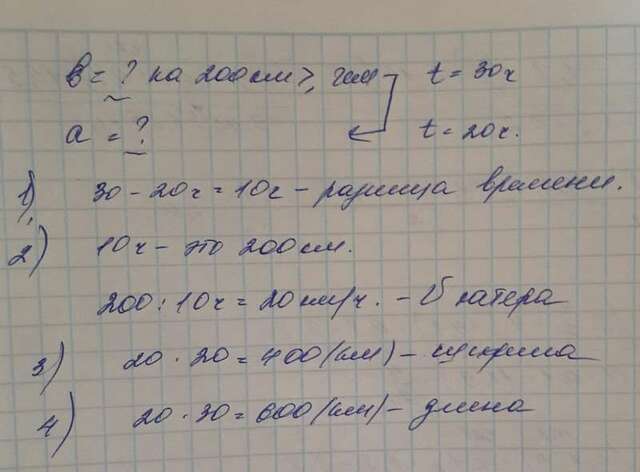 в = ? на 200 км >, чем t = 30ч
a = ? t = 20ч.
1) 30 - 20ч = 10ч - разница времени.
2) 10ч - это 200 км.
200 : 10ч = 20 км/ч. - V катера
3) 20 · 20 = 400 (км) - ширина
4) 20 · 30 = 600 (км) - длина